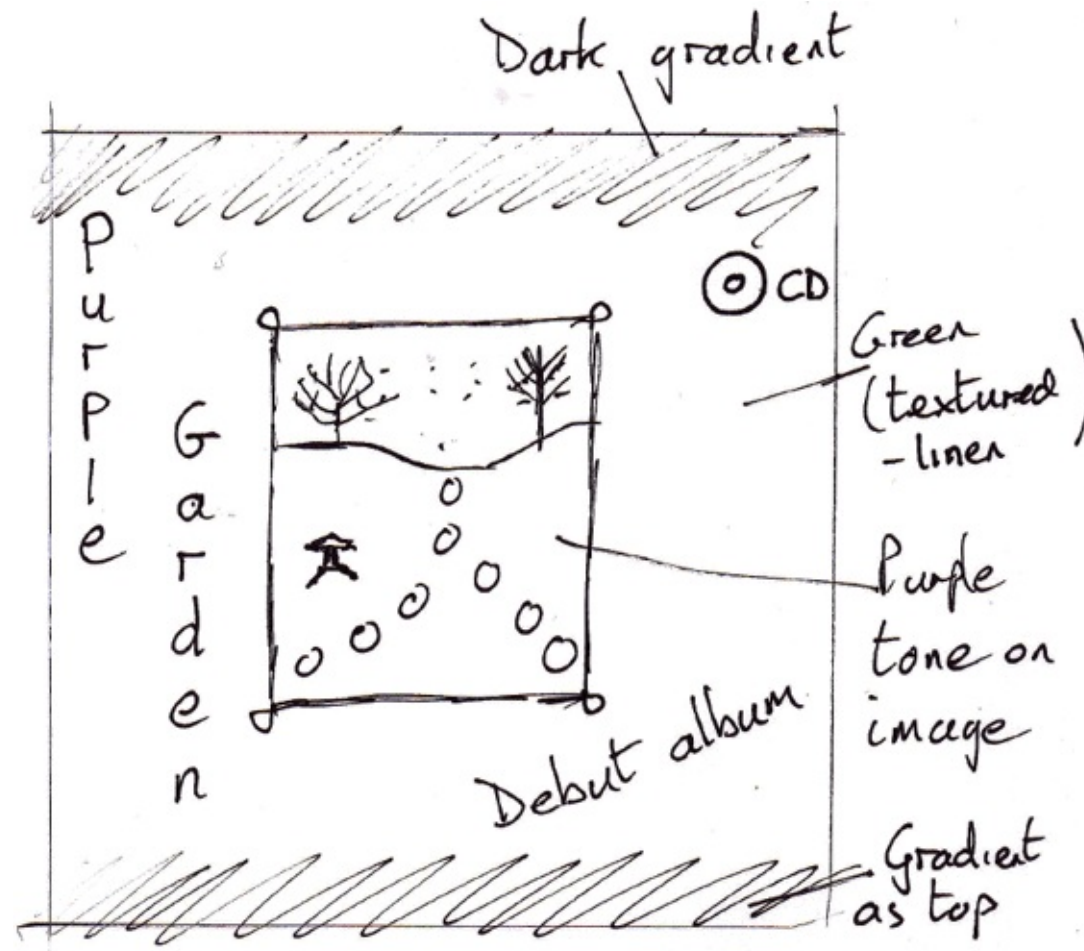 Dark gradient
Purple
Garden
CD
Green
(textured)
- linen
Purple
tone on
image
Debut album
Gradient
as top